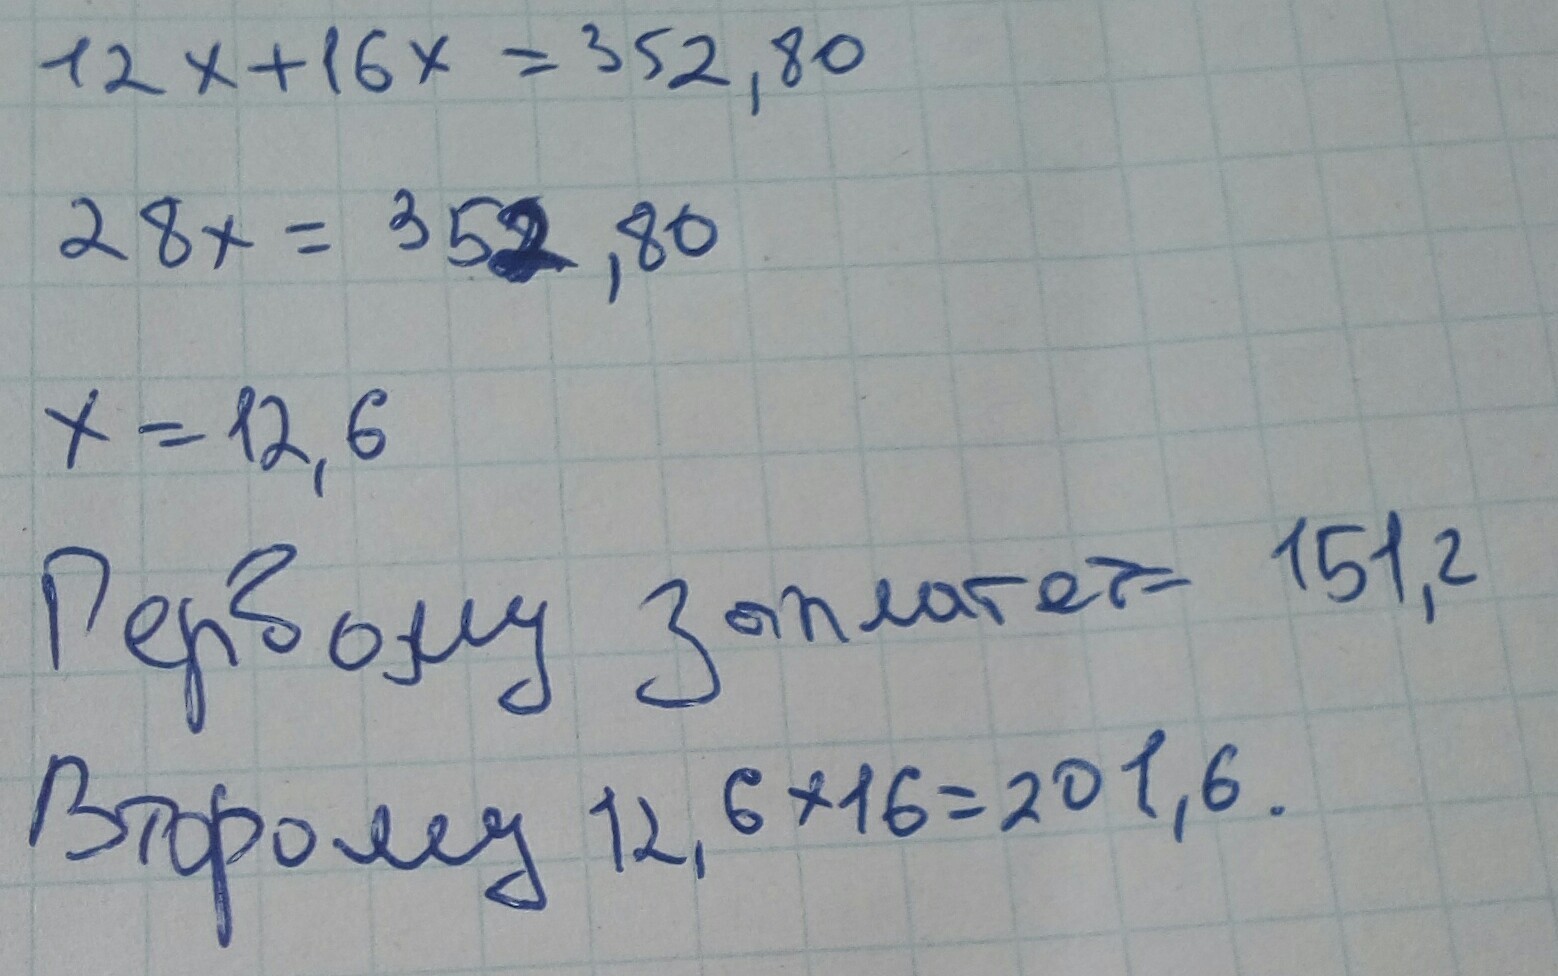 12x+16x = 352,80
28x = 352,80
x = 12,6
Первому заплатет= 151,2
Второму 12,6×16=201,6.